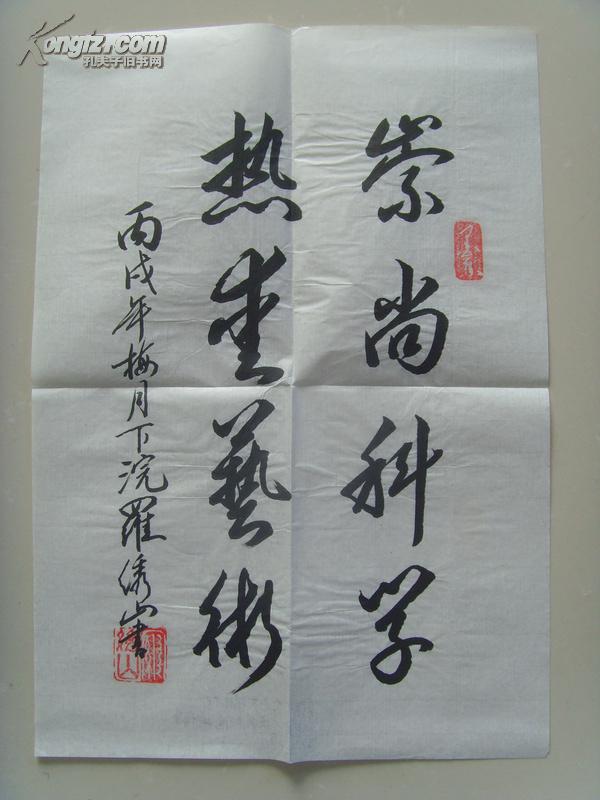 Kongfz.com
孔夫子旧书网
崇尚科学
热爱藝術
丙戌年梅月下浣羅绣山書